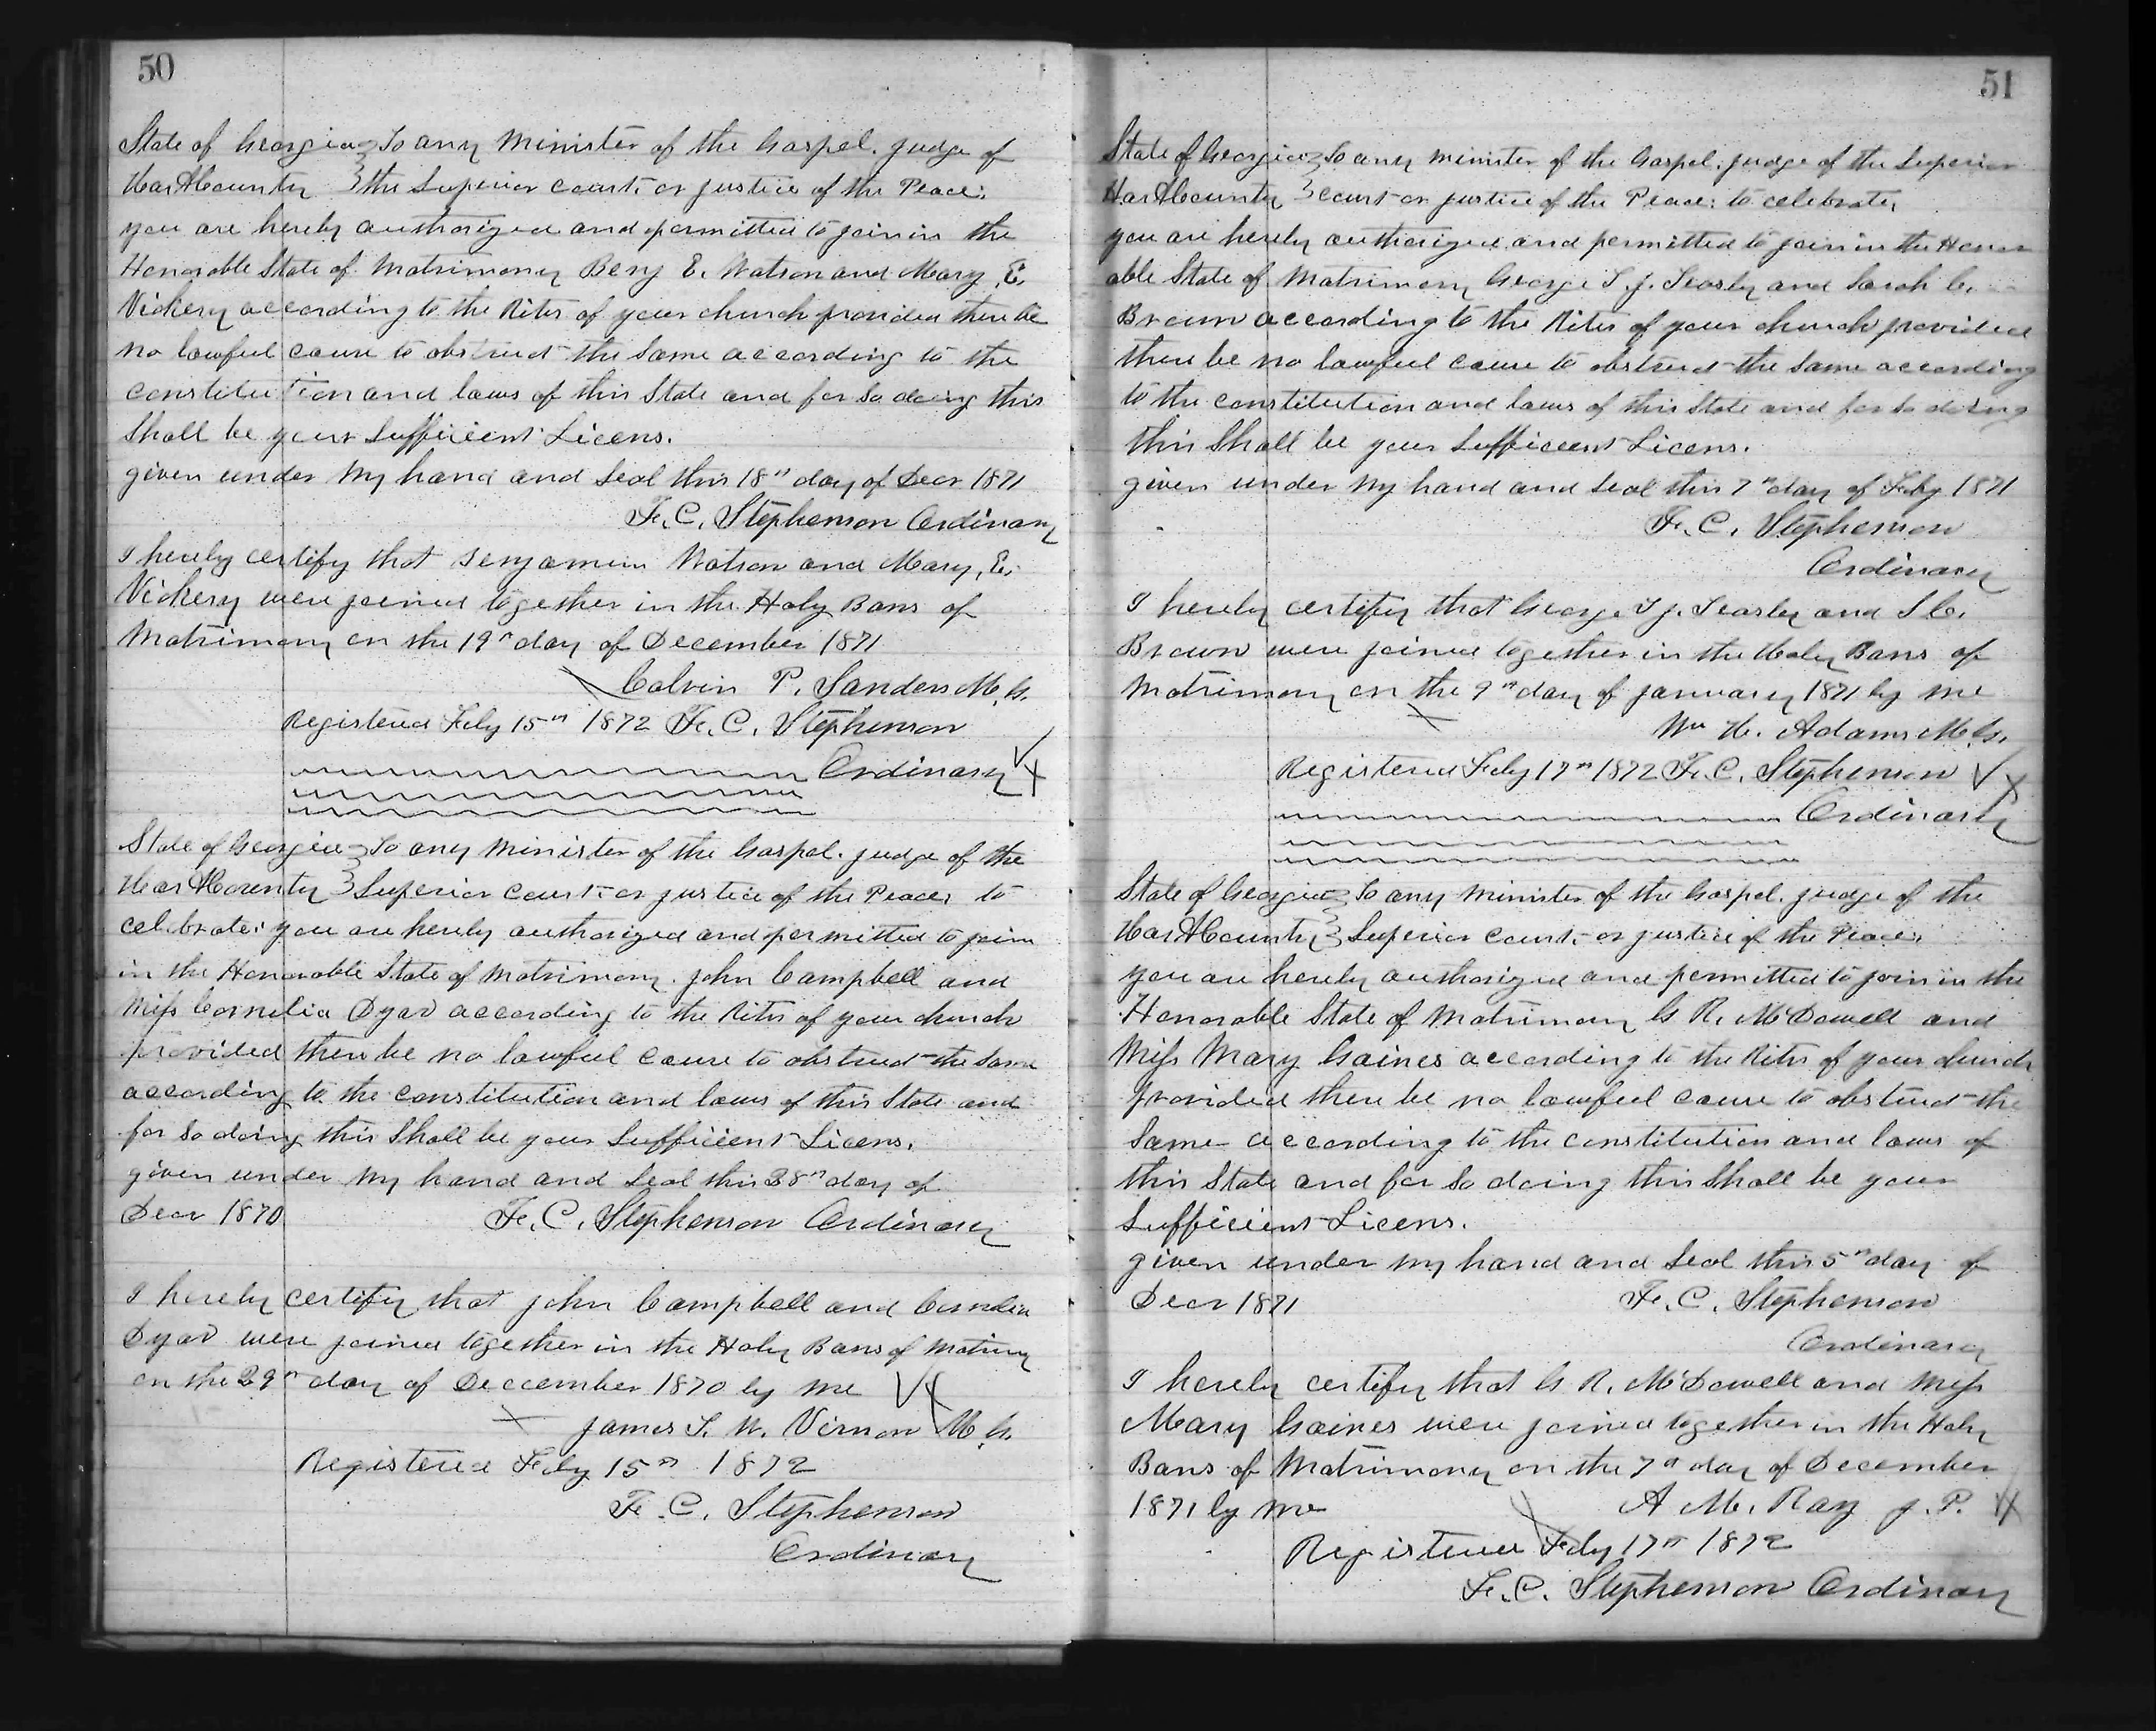 50
State of Georgia } To any Minister of the Gospel. Judge of
Hart County } the Superior court or Justice of the Peace:
you are hereby authorized and permitted to join in the
Honorable State of Matrimony Benj E. Watson and Mary, E.
Vickery according to the Rites of your church provided there be
no lawful cause to obstruct the same according to the
constitution and laws of this State and for so doing this
Shall be your Sufficient Licens.
given under my hand and Seal this 18th day of Decr 1871
F. C. Stephenson Ordinary
I hereby certify that Benjamin Watson and Mary, E.
Vickery were joined together in the Holy Bans of
Matrimony on the 19th day of December 1871
Calvin P. Sanders M.G.
Registered Feby 15th 1872 F. C. Stephenson
Ordinary
State of Georgia } To any Minister of the Gospel. Judge of the
Hart County } Superior Court or Justice of the Peace, to
celebrate: you are hereby authorized and permitted to join
in the Honorable State of Matrimony. John Campbell and
Miss Cornelia Dyar according to the Rites of your church
provided there be no lawful cause to obstruct the same
according to the constitution and laws of this State and
for so doing this Shall be your Sufficient Licens.
given under my hand and Seal this 28th day of
Decr 1870 F. C. Stephenson Ordinary
I hereby certify that John Campbell and Cornelia
Dyar were joined together in the Holy Bans of Matrimony
on the 29th day of December 1870 by me
James T. W. Vernon M.G.
Registered Feby 15th 1872
F. C. Stephenson
Ordinary
51
State of Georgia } To any minister of the Gospel. Judge of the Superior
Hart County } court or Justice of the Peace: to celebrate,
you are hereby authorized and permitted to join in the Honor
able State of Matrimony George T. J. Teasley and Sarah C.
Brown according to the Rites of your church provided
there be no lawful cause to obstruct the Same according
to the constitution and laws of this State and for so doing
this Shall be your Sufficient Licens.
given under my hand and Seal this 7th day of Feby 1871
F. C. Stephenson
Ordinary
I hereby certify that George T J. Teasley and S C.
Brown were joined together in the Holy Bans of
Matrimony on the 9th day of January 1871 by me
Wm H. Adams M.G.
Registered Feby 17th 1872 F. C. Stephenson
Ordinary
State of Georgia } To any Minister of the Gospel. Judge of the
Hart County } Superior Court or Justice of the Peace,
you are hereby authorized and permitted to join in the
Honorable State of Matrimony G R. McDowell and
Miss Mary Gaines according to the Rites of your church
provided there be no lawful cause to obstruct the
Same according to the constitution and laws of
this State and for so doing this Shall be your
Sufficient Licens.
given under my hand and Seal this 5th day of
Decr 1871 F. C. Stephenson
Ordinary
I hereby certify that G R. McDowell and Miss
Mary Gaines were joined together in the Holy
Bans of Matrimony on the 7th day of December
1871 by me A M. Ray J. P.
Registered Feby 17th 1872
F. C. Stephenson Ordinary